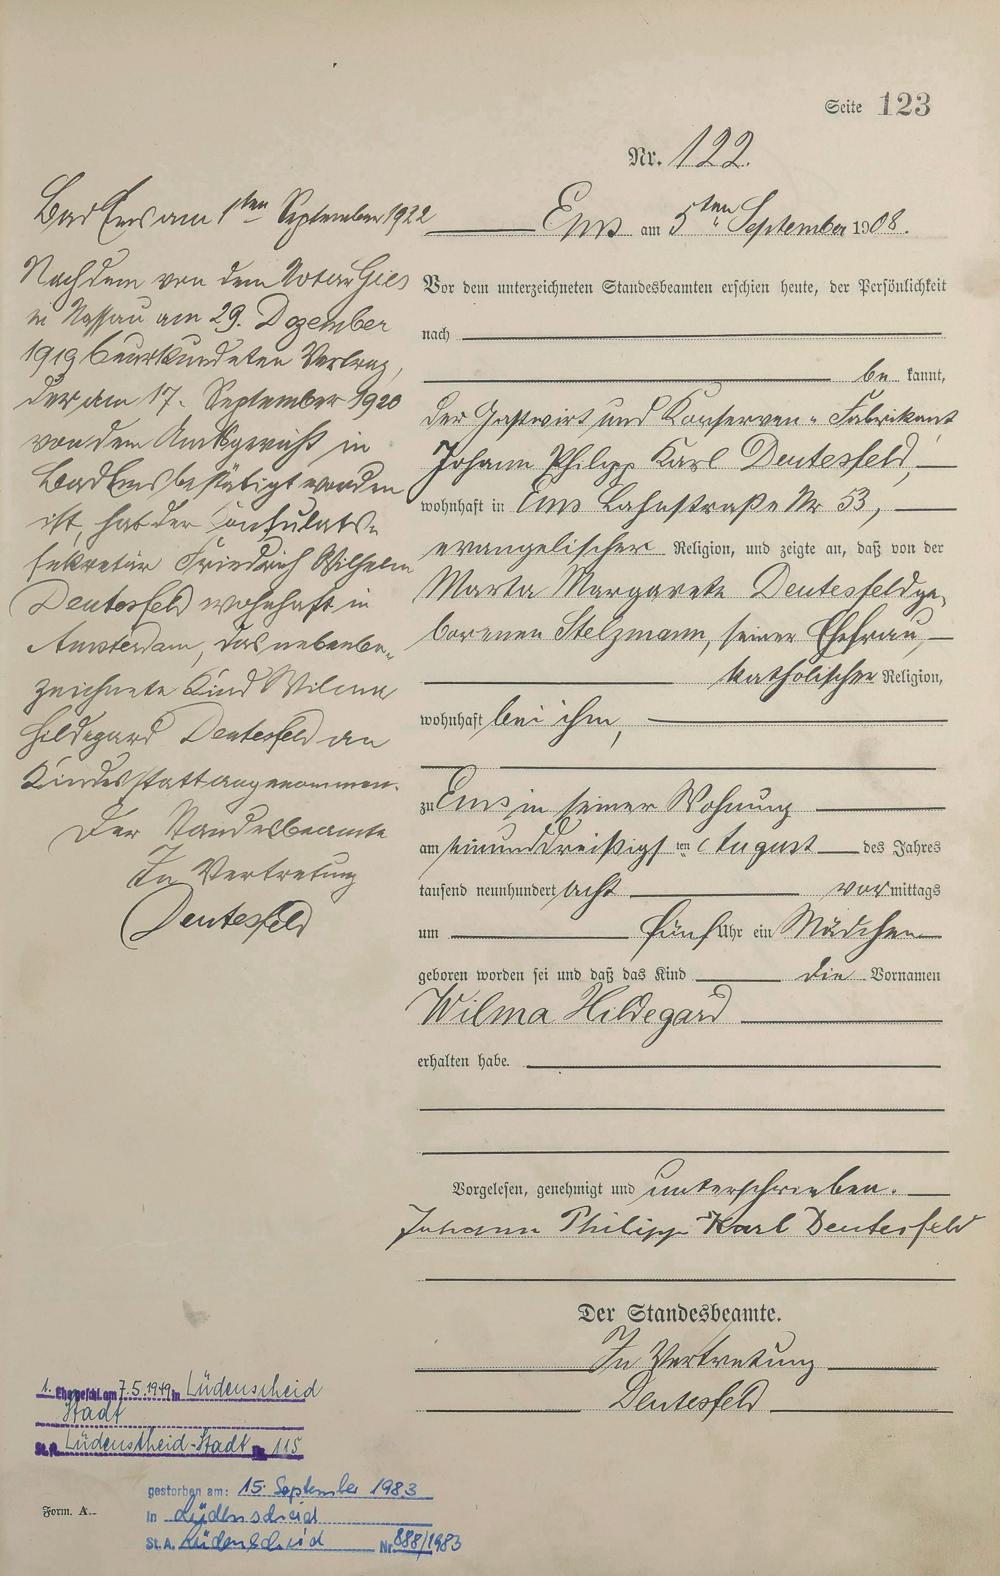 Seite 123
Nr. 122.
Ems am 5ten September 1908.
Vor dem unterzeichneten Standesbeamten erschien heute, der Persönlichkeit
nach
be kannt,
der Gastwirt und Konserven-Fabrikant
Johann Philipp Karl Deutesfeld,
wohnhaft in Ems Lahnstraße Nr 53,
evangelischer Religion, und zeigte an, daß von der
Marta Margareta Deutesfeld ge-
borenen Stelzmann, seiner Ehefrau,
katholischer Religion,
wohnhaft bei ihm,
zu Ems in seiner Wohnung
am einunddreißigsten August des Jahres
tausend neunhundert acht vormittags
um fünf Uhr ein Mädchen
geboren worden sei und daß das Kind die Vornamen
Wilma Hildegard
erhalten habe.
Vorgelesen, genehmigt und unterschrieben.
Johann Philipp Karl Deutesfeld
Der Standesbeamte.
In Vertretung
Deutesfeld
Bad Ems am 1ten September 1922
Nachdem von dem Notar Gies
in Nassau am 29. Dezember
1919 beurkundeten Vertrag,
der am 17. September 1920
von dem Amtsgericht in
Bad Ems bestätigt worden
ist, hat der Konsulats-
sekretär Friedrich Wilhelm
Deutesfeld wohnhaft in
Amsterdam, das nebenbe-
zeichnete Kind Wilma
Hildegard Deutesfeld an
Kindesstatt angenommen.
Der Standesbeamte
In Vertretung
Deutesfeld
1. Eheschl. am 7.5.1949 in Lüdenscheid
Stadt
St.A. Lüdenscheid-Stadt Nr. 115
gestorben am: 15. September 1983
in Lüdenscheid
St.A. Lüdenscheid Nr. 888/1983
Form. A.